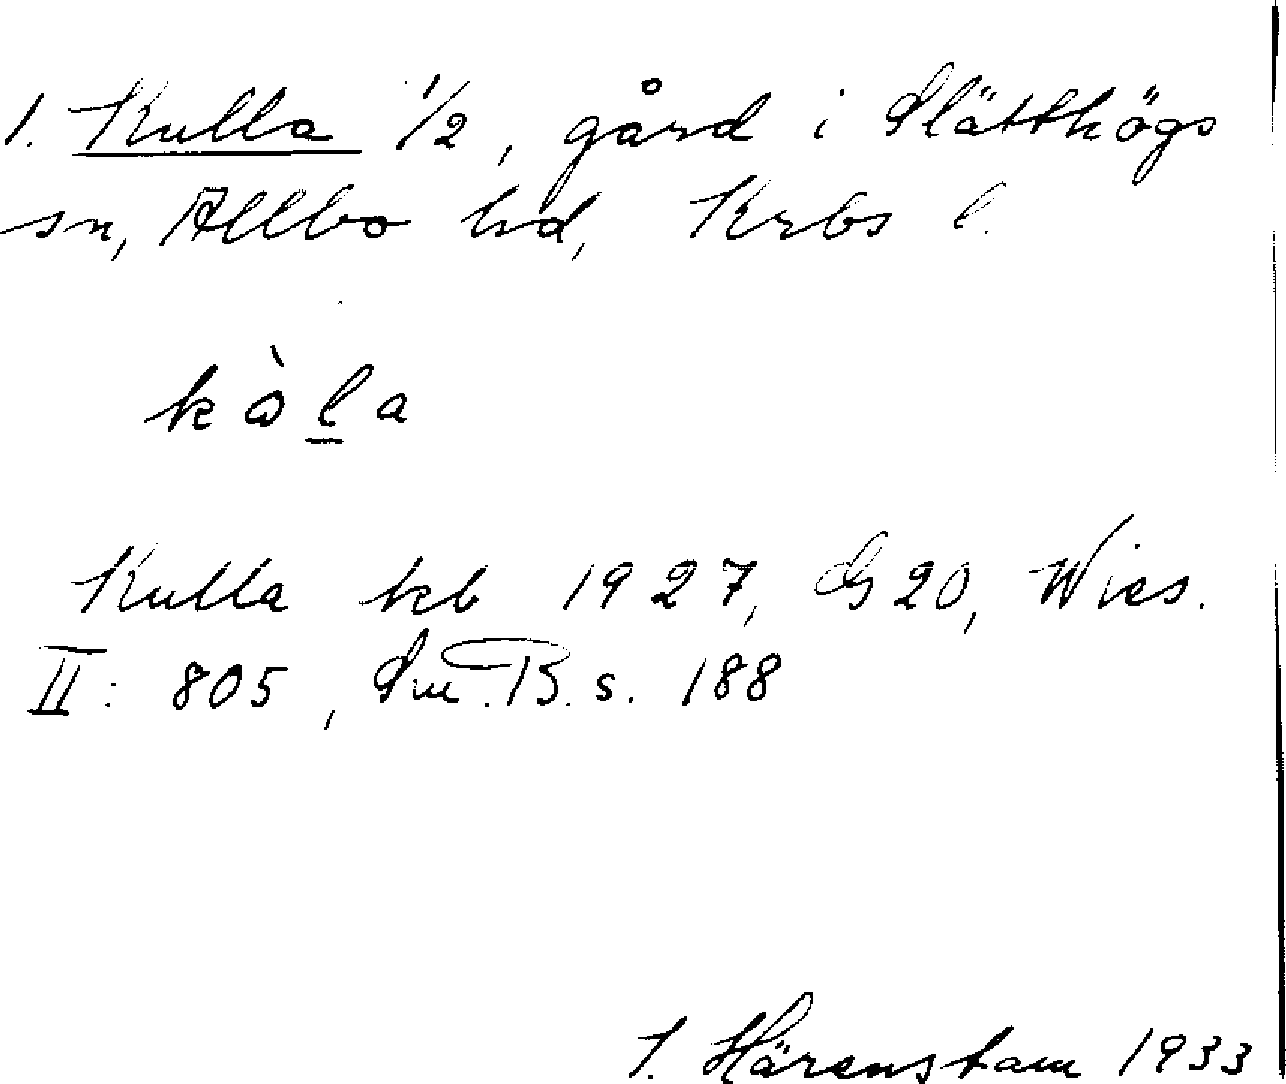 1. Kulla 1/2, gård i Slätthögs
sn, Allbo hd, Krbs l.
kòl̲a
Kulla kb 1927, GS 20, Wies.
II: 805, Sm. B. s. 188
I. Härenstam 1933